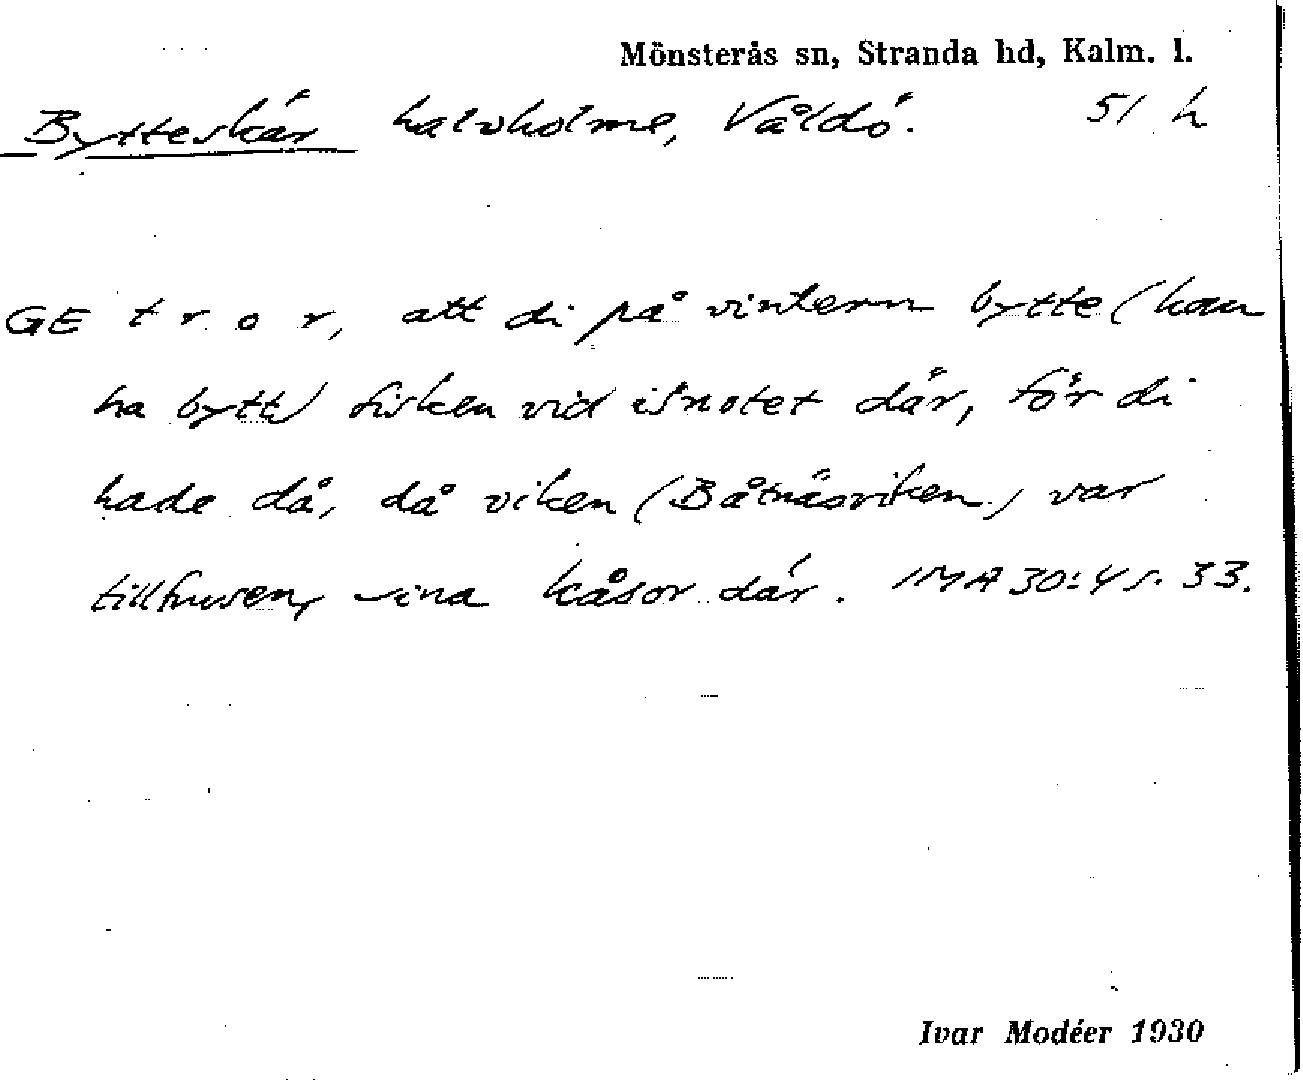 Mönsterås sn, Stranda hd, Kalm. l.
Bytteskär halvholme, Våldö. 51 h
GE t r o r, att di på vintern bytte (kan
ha bytt) fisken vid isnotet där, för di
hade då, då viken (Båtnäsviken) var
tillfrusen, sina kåsor där. IMA 30:4 s. 33.
Ivar Modéer 1930